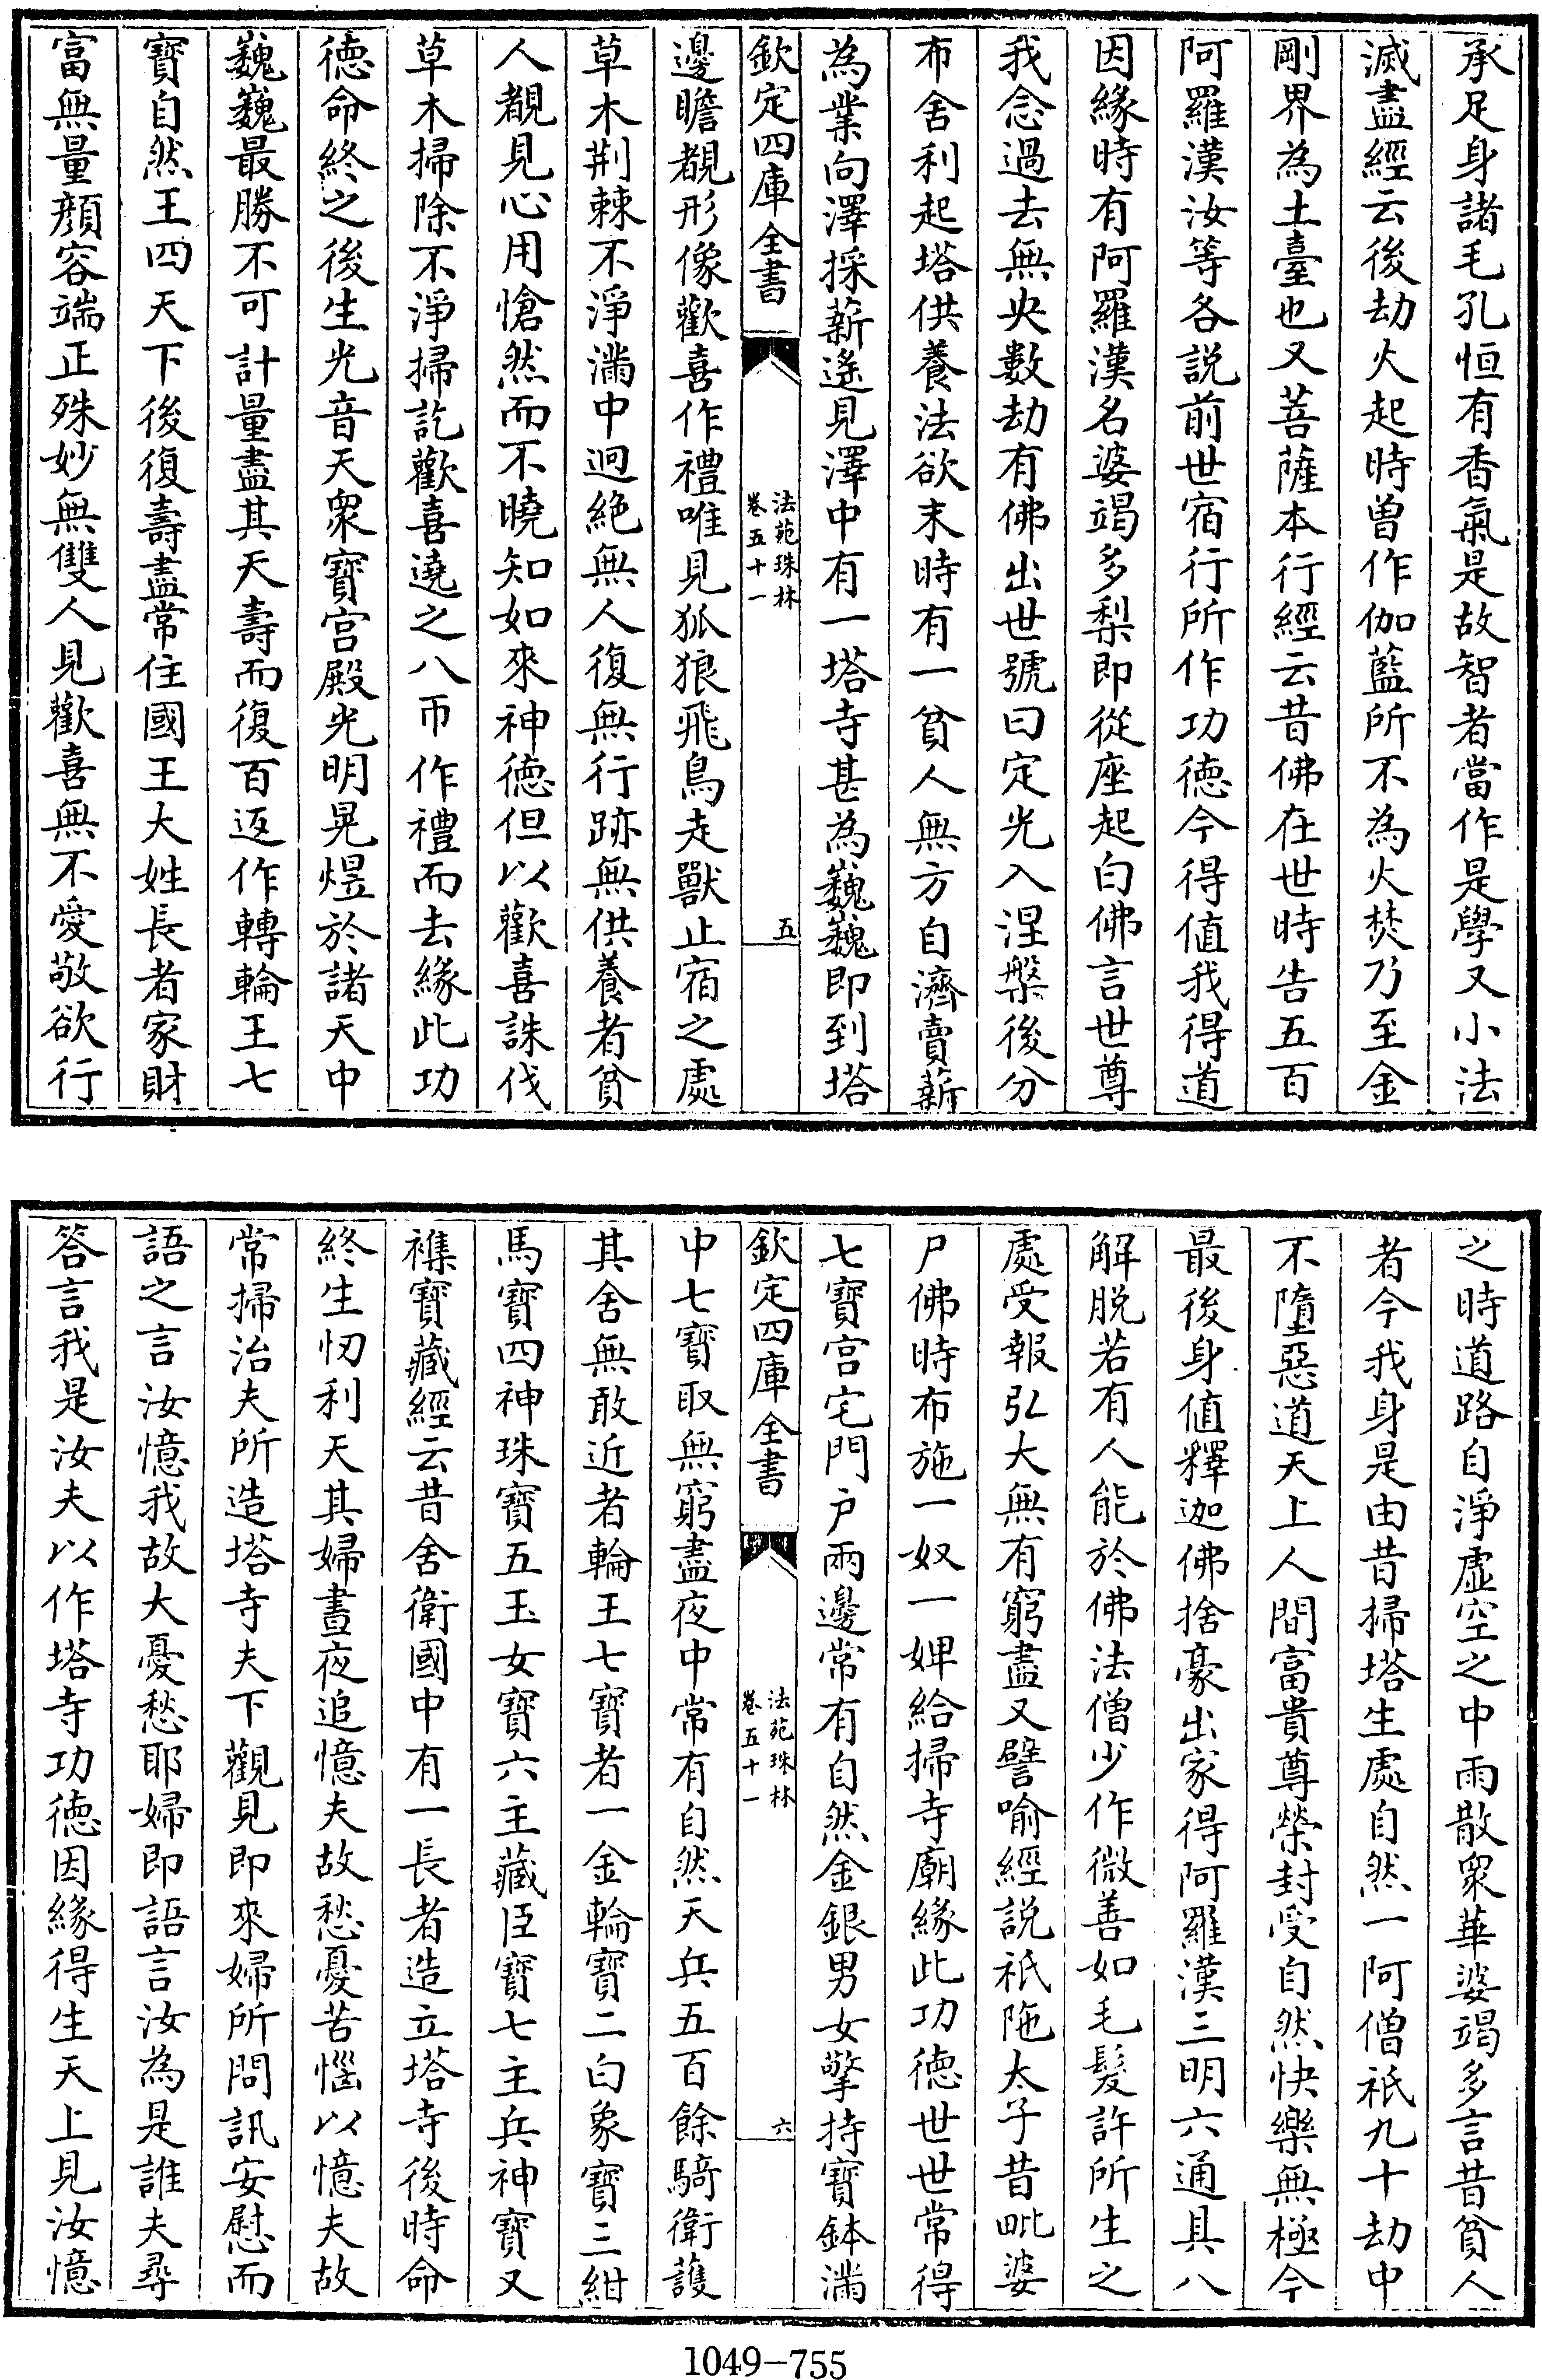 承足身諸毛孔恒有香氣是故智者當作是學又小法
滅盡經云後劫火起時曽作伽藍所不為火焚乃至金
剛界為土臺也又菩薩本行經云昔佛在世時告五百
阿羅漢汝等各說前世宿行所作功徳今得值我得道
因緣時有阿羅漢名婆竭多梨即從座起白佛言世尊
我念過去無央數劫有佛出世號曰定光入涅槃後分
布舍利起塔供養法欲末時有一貧人無方自濟賣薪
為業向澤採薪遙見澤中有一塔寺甚為巍巍即到塔
欽定四庫全書
法苑珠林
卷五十一
五
邊瞻覩形像歡喜作禮唯見狐狼飛鳥走獸止宿之處
草木荆棘不淨滿中迥絶無人復無行跡無供養者貧
人覩見心用愴然而不曉知如來神徳但以歡喜誅伐
草木掃除不淨掃訖歡喜遶之八帀作禮而去緣此功
徳命終之後生光音天衆寳宫殿光明晃煜於諸天中
巍巍最勝不可計量盡其天壽而復百返作轉輪王七
寳自然王四天下後復壽盡常住國王大姓長者家財
富無量顔容端正殊妙無雙人見歡喜無不愛敬欲行
之時道路自淨虛空之中雨散衆華婆竭多言昔貧人
者今我身是由昔掃塔生處自然一阿僧祇九十劫中
不墮惡道天上人間富貴尊榮封受自然快樂無極今
最後身值釋迦佛捨豪出家得阿羅漢三明六通具八
解脱若有人能於佛法僧少作微善如毛髮許所生之
處受報弘大無有窮盡又譬喻經説祇陁太子昔毗婆
尸佛時布施一奴一婢給掃寺廟緣此功徳世世常得
七寳宫宅門户兩邊常有自然金銀男女擎持寳鉢滿
欽定四庫全書
法苑珠林
卷五十一
六
中七寳取無窮盡夜中常有自然天兵五百餘騎衛護
其舍無敢近者輪王七寳者一金輪寳二白象寳三紺
馬寳四神珠寳五玉女寳六主藏臣寳七主兵神寳又
襍寳藏經云昔舍衛國中有一長者造立塔寺後時命
終生忉利天其婦晝夜追憶夫故愁憂苦惱以憶夫故
常掃治夫所造塔寺夫下觀見即來婦所問訊安慰而
語之言汝憶我故大憂愁耶婦即語言汝為是誰夫尋
答言我是汝夫以作塔寺功徳因緣得生天上見汝憶
1049-755